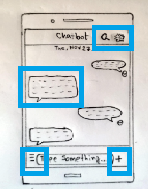 Chatbot
Tue, Nov 27
Type Something...